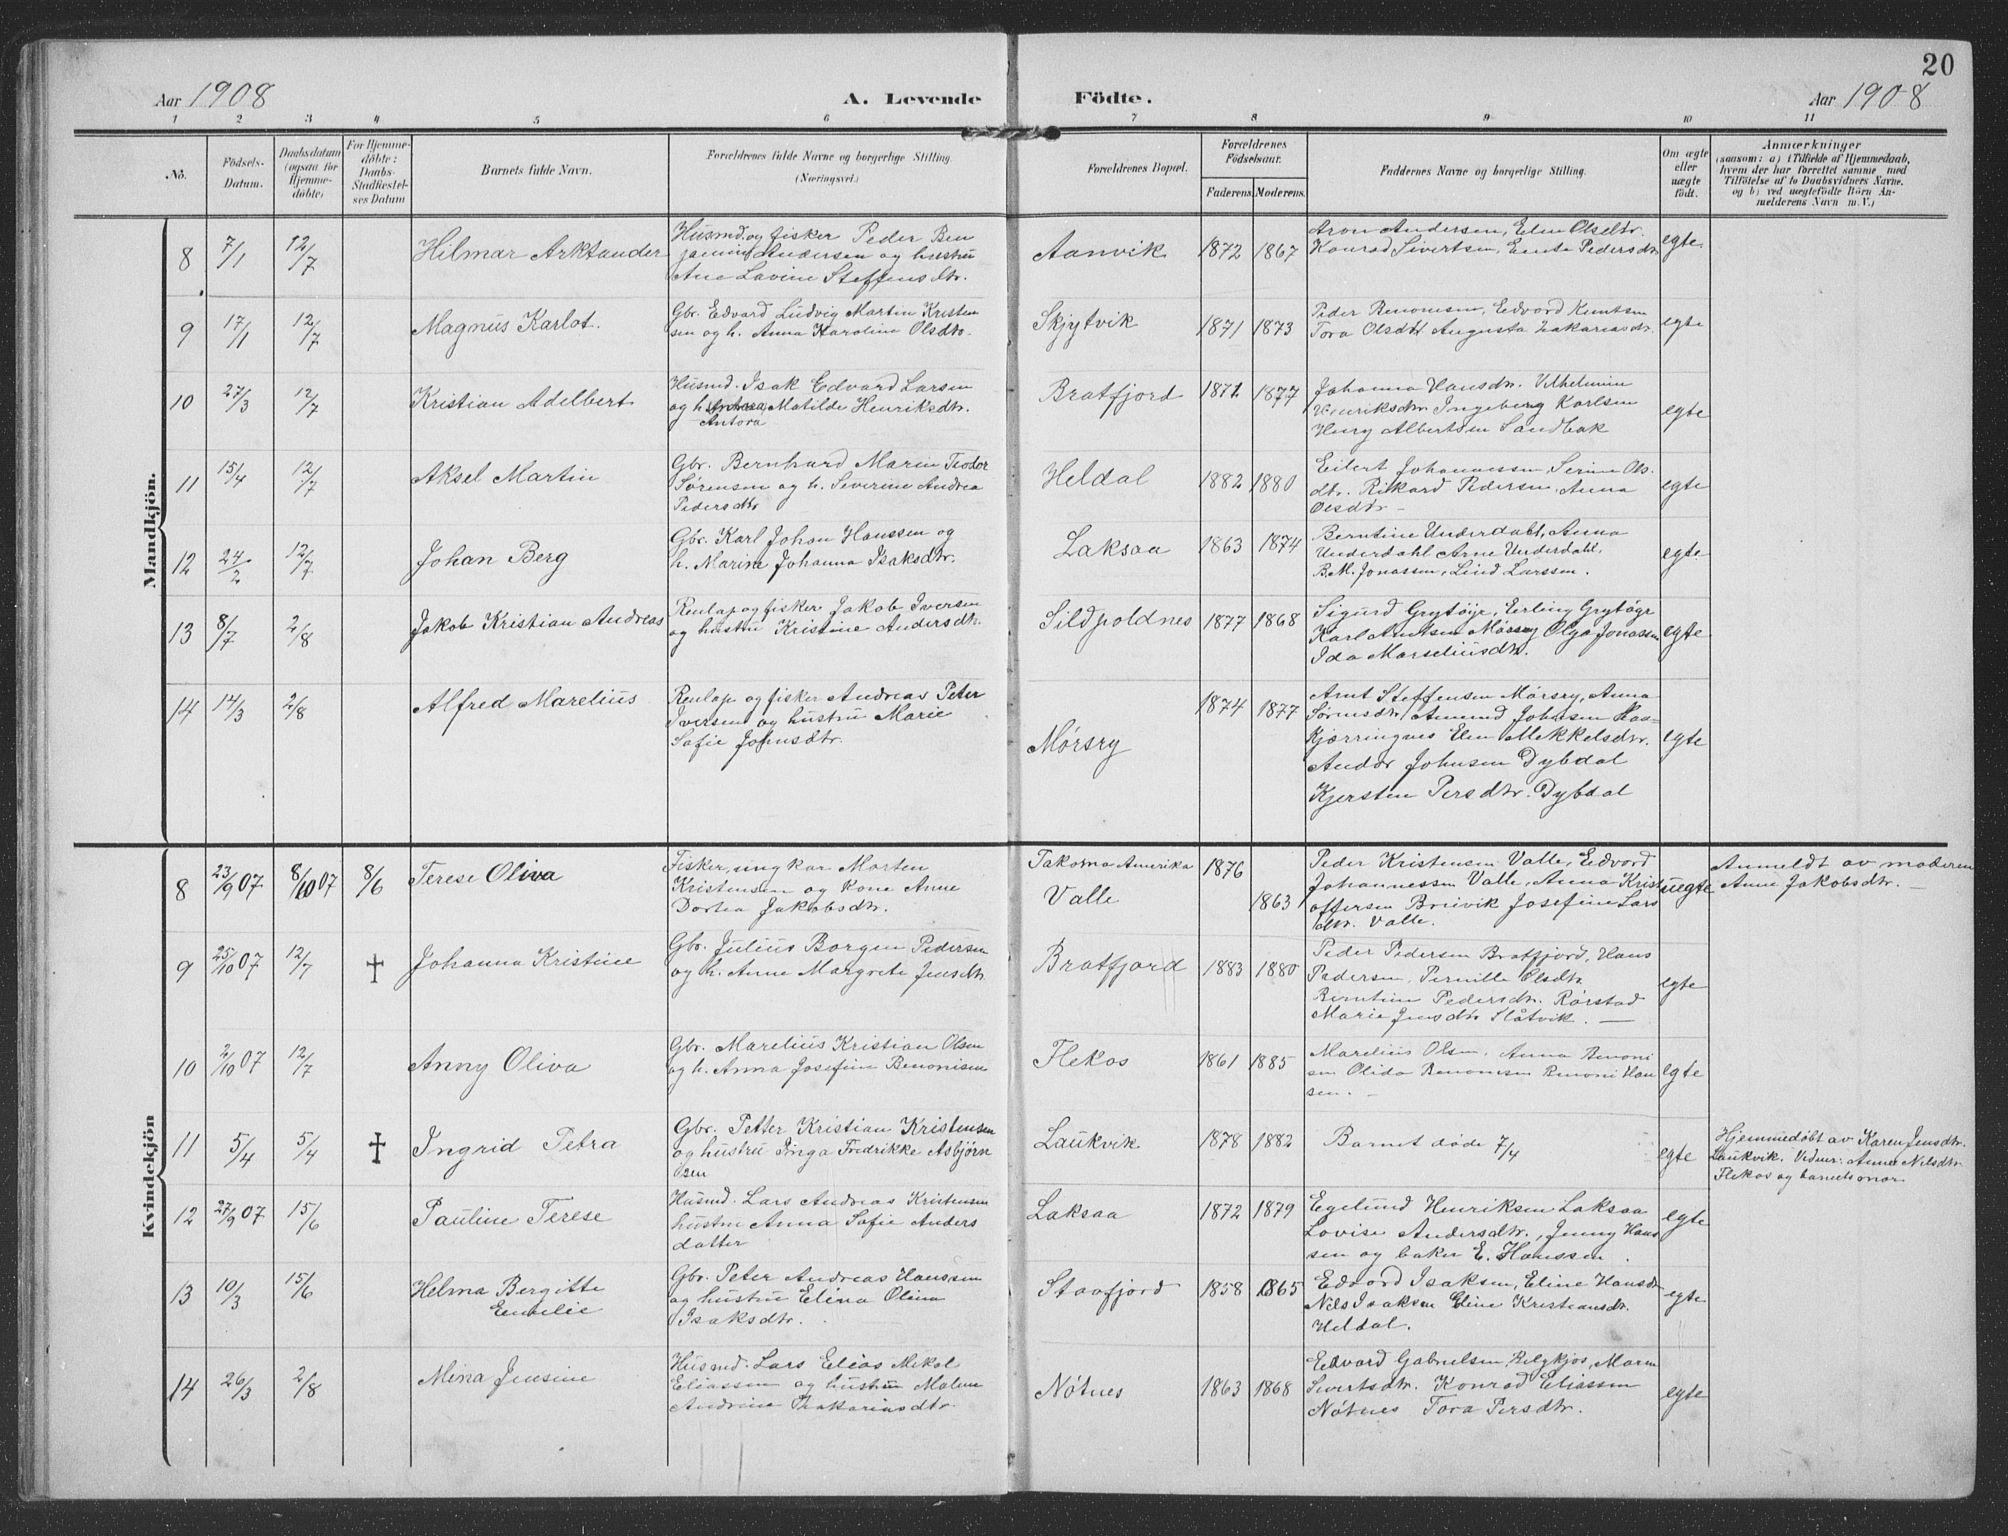 20
Aar 1908 A. Levende Födte. Aar 1908
1 2 3 4 5 6 7 8 9 10 11
No.
Födsels-Datum.
Daabsdatum (ogsaa for Hjemmedöbte)
For Hjemmedöbte: Daabs-Stadfæstelses Datum
Barnets fulde Navn.
Forældrenes fulde Navne og borgerlige Stilling.
(Næringsvei.)
Forældrenes Bopæl.
Forældrenes Födselsaar.
Faderens. Moderens.
Faddernes Navne og borgerlige Stilling.
Om ægte eller uægte födt.
Anmærkninger
(saasom: a) i Tilfælde af Hjemmedaab,
hvem der har forrettet samme med
Tilföielse af to Daabsvidners Navne.
og b) ved uegtefödte Börn An-
melderens Navn m. V.)
Mandkjön.
8 7/1 12/7 Hilmar Arktander
Husmd. og fisker Peder Ben
jamin Andersen og hustru
Ane Lovine Steffensdtr.
Aanvik 1872 1867
Aron Andersen, Elen Olsdtr.
Konrad Sivertsen, Pedersdtr.
egte
9 17/1 12/7 Magnus Karlot.
Gbr. Edvard Ludvig Martin Kristen
sen og h. Anna Karoline Olsdtr.
Skjytvik 1871 1873
Peder Benonisen, Edvard Knutsen
Tora Olsdtr. Augusta Zakariasdtr.
egte
10 27/3 12/7 Kristian Adelbert
Husmd. Isak Edvard Larsen
og h. Matilde Henriksdtr.
Antora
Bratfjord 1871 1877
Johanna Hansdtr. Vilhelmine
Henriksdtr. Ingeberg Karlsen
Henry Albertsen Sandbak
egte
11 15/4 12/7 Aksel Martin
Gbr. Bernhard Marin Teodor
Sørensen og h. Severine Andrea
Pedersdtr
Heldal 1882 1880
Eilert Johannessen, Serine Ols.
dtr. Rikard Pedersen, Anna
Olsdtr -
egte
12 24/2 12/7 Johan Berg
Gbr. Karl Johan Hanssen og
h. Marine Johanna Isaksdtr.
Laksaa 1863 1874
Berntine Underdahl, Anna
Underdahl Arne Underdahl,
B.M. Jonassen, Lind Larssen.
egte
13 8/7 2/8 Jakob Kristian Andreas
Renlap og fisker Jakob Iversen
og hustru Kristine Andersdtr.
Sildpoldnes 1877 1868
Sigurd Grytøjr, Erling Grytøgr
Karl Arntsen Mørsry Olga Jonassen
Ida Marseliusdtr.
egte
14 14/3 2/8 Alfred Marelius
Renlap og fisker Andreas Peter
Iversen og hustru Marie
Sofie Johnsdtr.
Mørsry 1874 1877
Arnt Steffensen Mørsry, Anna
Sørensdtr, Amund Johnsen Kaa-
kjærringnes Elen Mekkelsdtr.
Andor Johnsen Dybdal
Kjersten Persdtr. Dybdal
egte
Kvindekjön
8 23/9 07 8/10 07 8/6 Terese Oliva
Fisker, ungkar Morten
Kristensen og kone Anne
Dortea Jakobsdtr.
Takoma Amerika 1876
Valle 1863
Peder Kristensen Valle, Edvard
Johannessen Valle, Anna Krist
offersen Breivik Josefine Lars
dtr. Valle.
uegte
Anmeldt av moderen
Anne Jakobsdtr. -
9 25/10 07 12/7 † Johanna Kristine
Gbr. Julius Borgen Pedersen
og h. Anne Margrete Jensdtr
Bratfjord 1883 1880
Peder Pedersen Bratfjord, Hans
Pedersen, Pernille Olsdtr.
Berntine Pedersdtr. Rørstad
Marie Jensdtr Slåtvik. -
egte
10 2/10 07 12/7 Anny Oliva
Gbr. Marelius Kristian Olsen
og h. Anna Josefine Benonisen
Flekos 1861 1885
Marelius Olsen, Anna Benoni
sen Olida Benonisen Benoni Han
sen. -
egte
11 5/4 5/4 † Ingrid Petra
Gbr. Petter Kristian Kristensen
og hustru Inga Fredrikke Asbjørn
sen
Laukvik 1878 1882
Barnet døde 7/4
egte
Hjemmedøbt av Karen Jensdtr.
Laukvik. Vidner: Anna Nilsdtr
Flekos og barnets mor
12 27/9 07 15/6 Pauline Terese
Husmd. Lars Andreas Kristensen
hustru Anna Sofie Anders
datter
Laksaa 1872 1879
Egelund Henriksen Laksaa
Lovise Andersdtr., Jenny Hans
sen og baker E. Hanssen.
egte
13 10/3 15/6 Helma Bergitte
Emilie
Gbr. Peter Andreas Hanssen
og hustru Elina Olina
Isaksdtr.
Stavfjord 1858 1865
Edvard Isaksen, Eline Hansdtr
Nils Isaksen Eline Kristiansdtr.
Heldal.
egte
14 26/3 2/8 Mina Jensine
Husmd. Lars Elias Mikal
Eliassen og hustru Malene
Andrine Zakariasdtr.
Nøtnes 1863 1868
Edvard Gabrielsen, Helgkjos, Maren
Sivertsdtr. Konrad Eliassen
Nøtnes Tora Persdtr.
egte